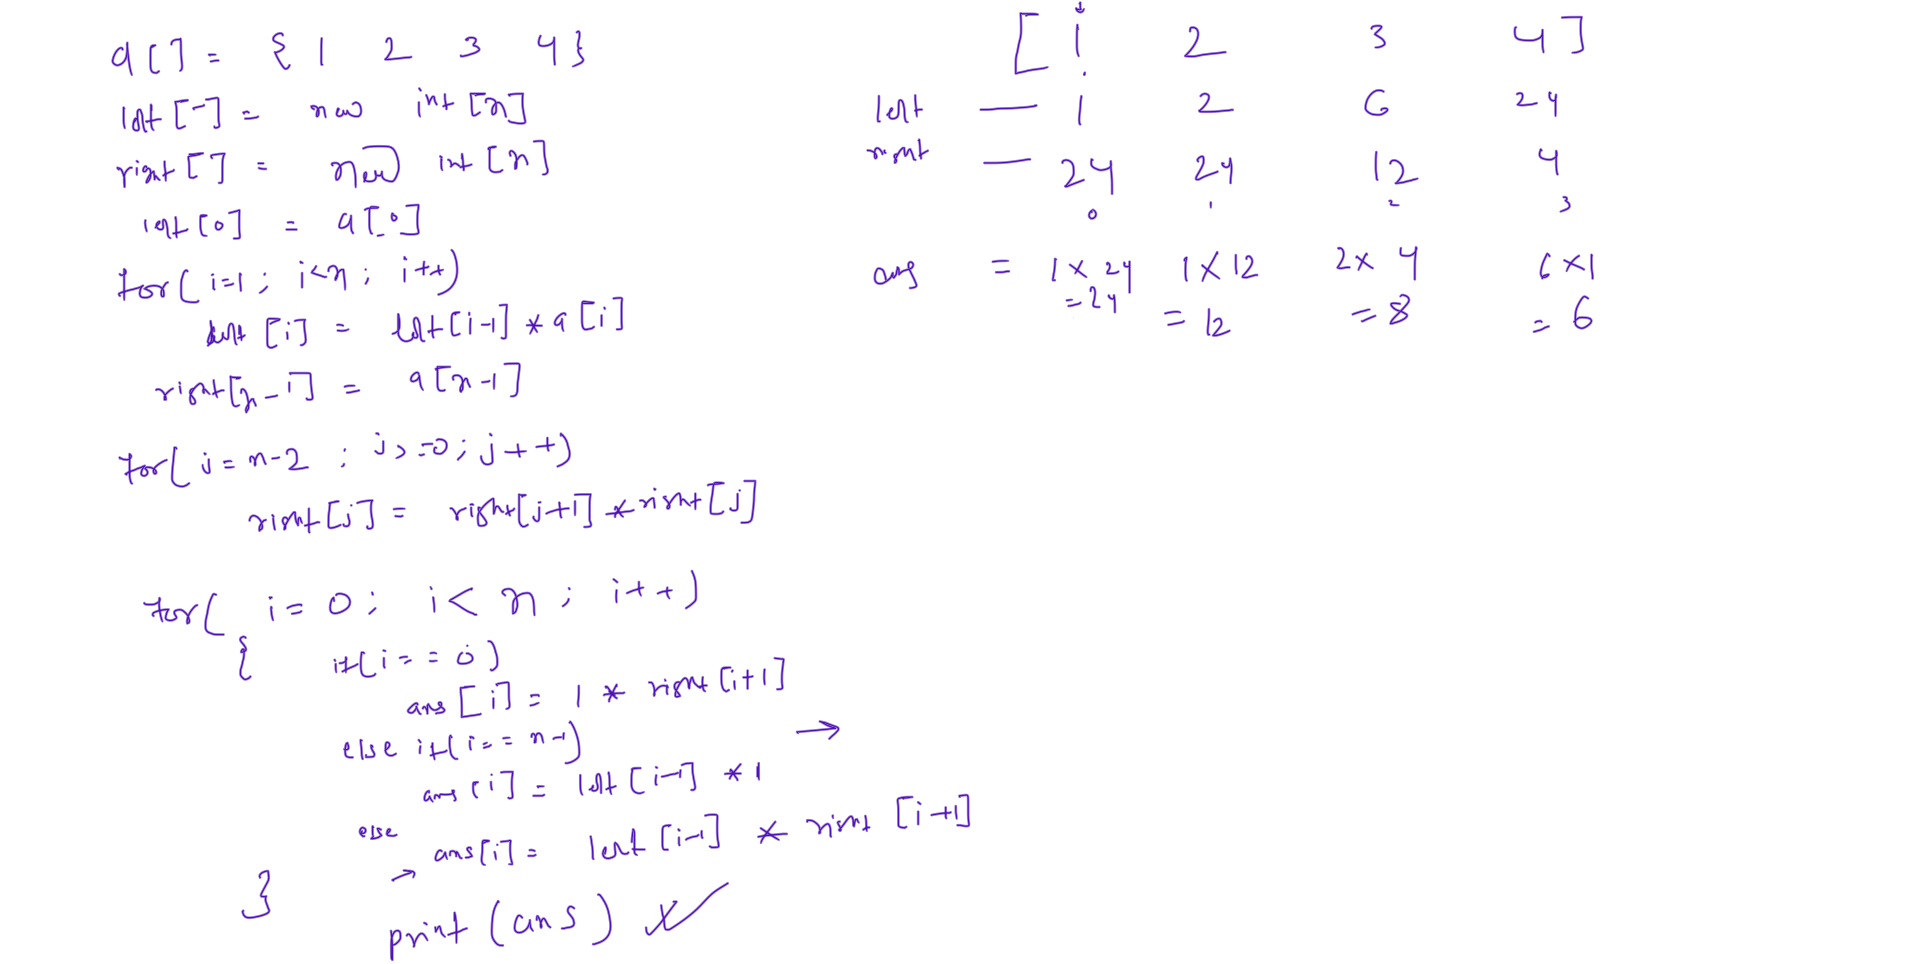 a[] = { 1 2 3 4 }
left [-] = new int [n]
right [] = new int [n]
left [0] = a [0]
for( i=1 ; i<n ; i++)
left [i] = left [i-1] * a [i]
right[n-1] = a [n-1]
for( j = n-2 ; j>=0 ; j++)
right [j] = right[j+1] * right [j]
for( i = 0 ; i < n ; i++)
{ if( i = = 0 )
ans [i] = 1 * right [i+1]
else if( i = = n-1)
ans [i] = left [i-1] * 1
else
→ ans[i] = left [i-1] * right [i+1]
}
print (ans)
→
[ 1 2 3 4 ]
left — 1 2 6 24
right — 24 24 12 4
0 1 2 3
ans = 1 x 24 1 x 12 2 x 4 6 x 1
= 24 = 12 = 8 = 6